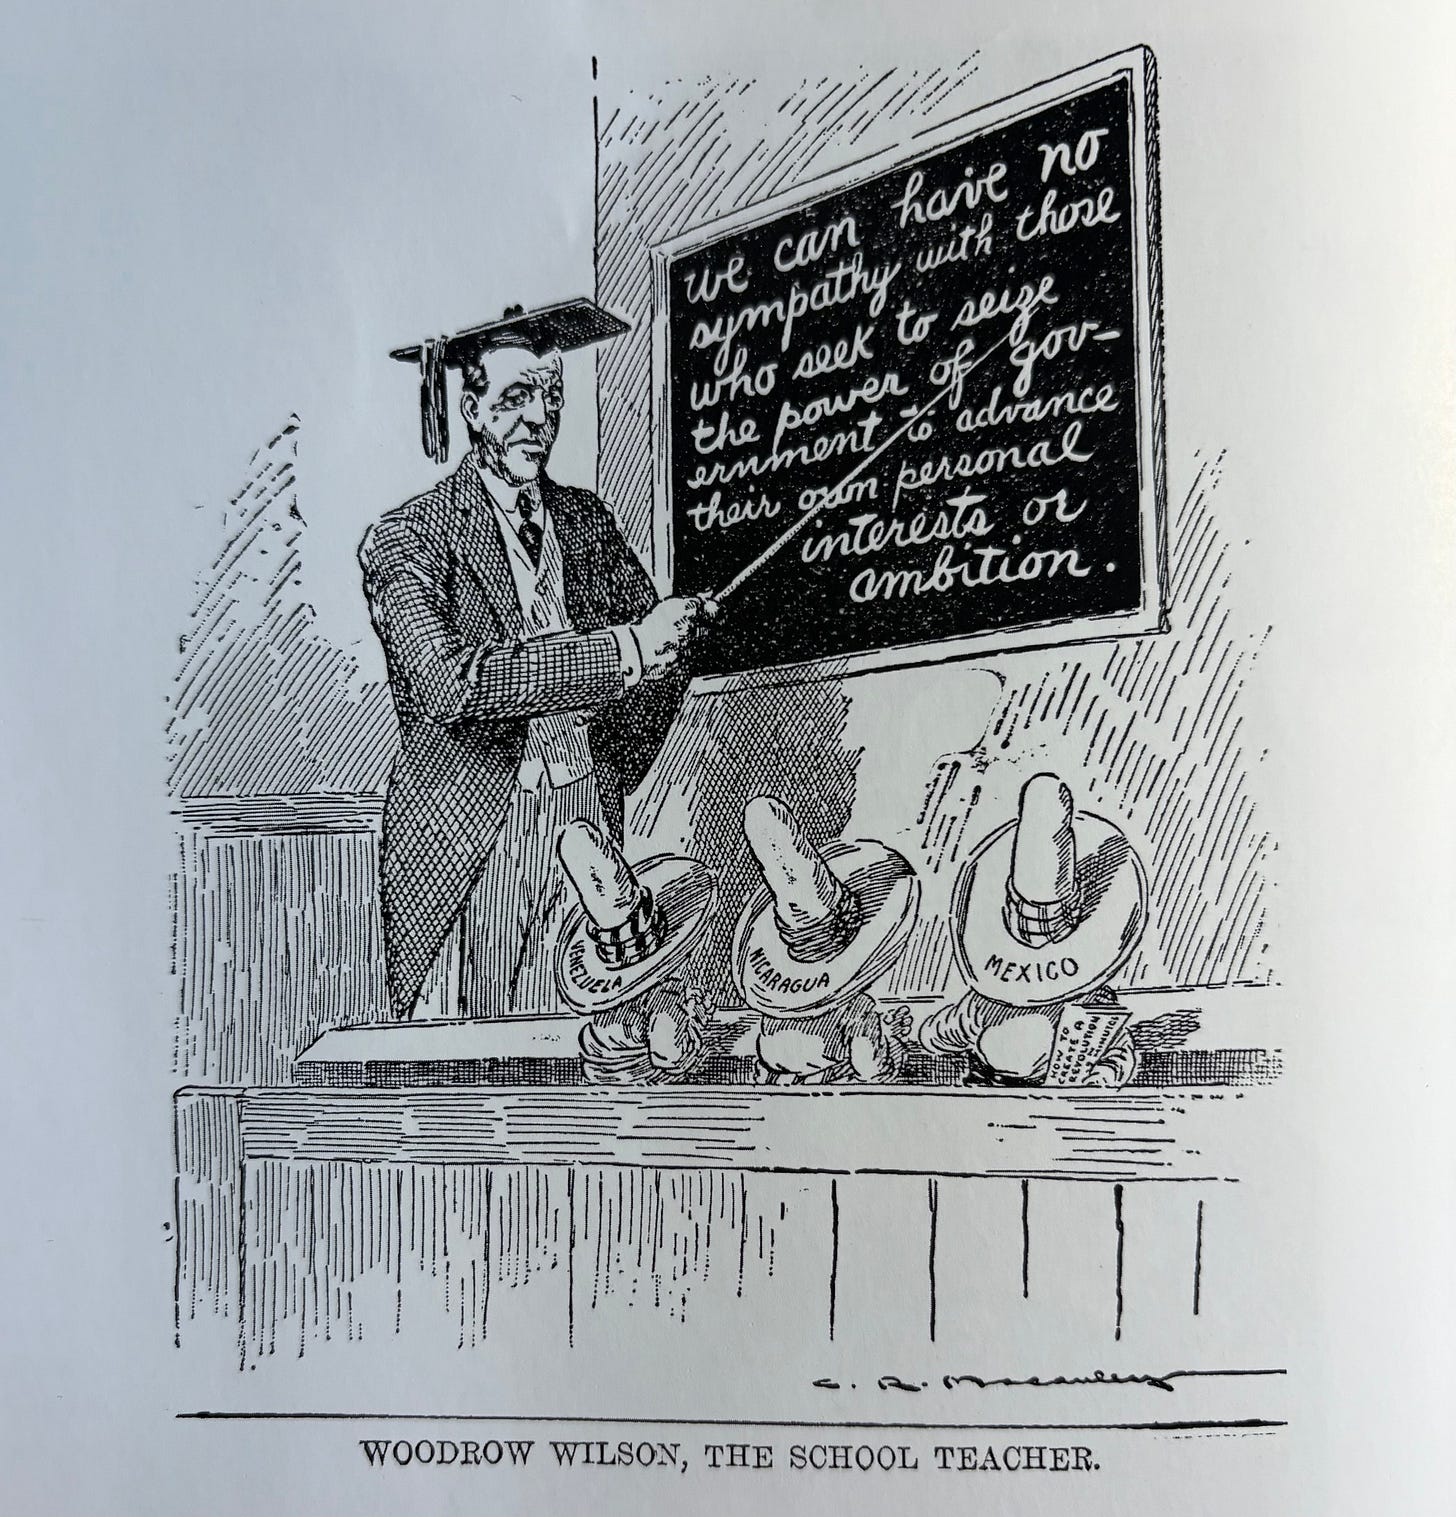 we can have no
sympathy with those
who seek to seize
the power of gov-
ernment to advance
their own personal
interests or
ambition.
VENEZUELA
NICARAGUA
MEXICO
HOW TO
CREATE A
REVOLUTION
C. R. Macauley
WOODROW WILSON, THE SCHOOL TEACHER.